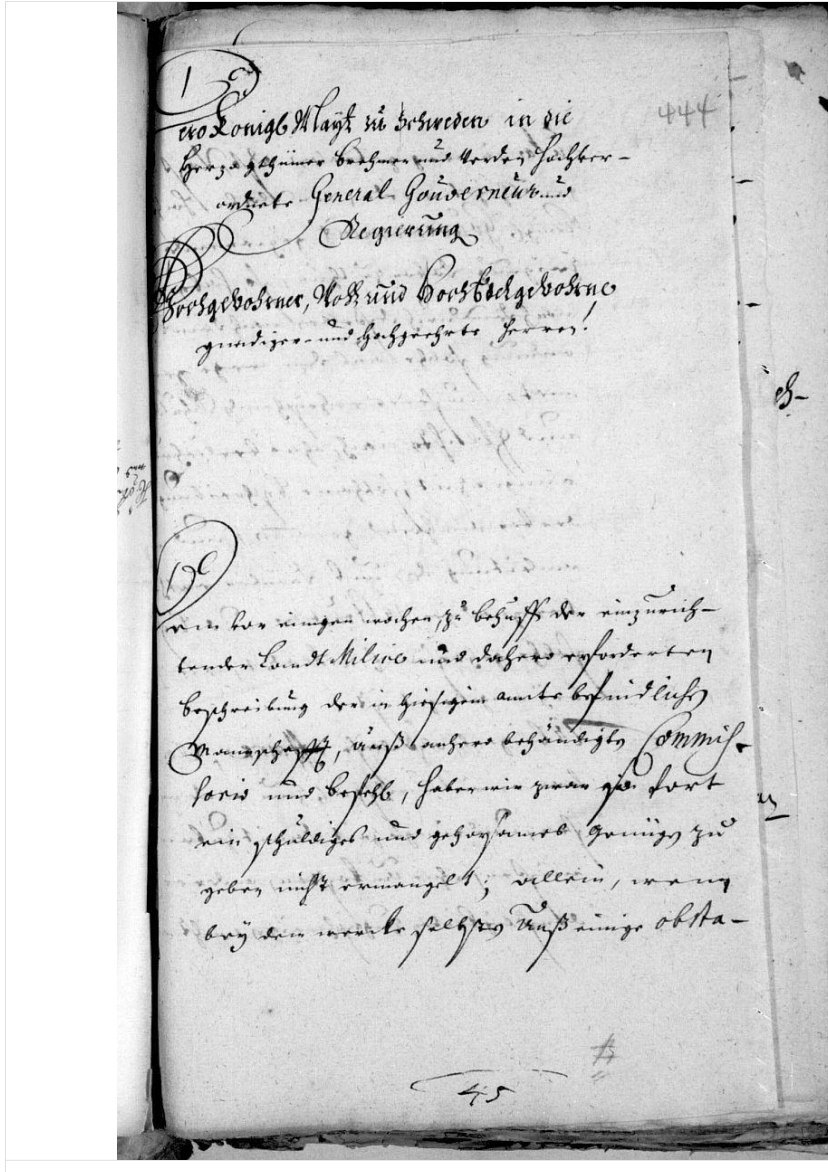 444
Dero Königl Mayt zu Schweden in die
Herzogthümer Brehmen und Verden Hochver-
ordnete General Gouverneur und
Regierung
Hochgebohrner, Woll und HochEdelgebohrne
gnädiger- und Hochgeehrte Herren!
Dem vor einigen wochen, zu behuff der einzurich-
tender Landt Milice und dahero erforderten
beschreibung der in hiesigem amte befindlichen
Manschafft, auß anhero behändigten Commis-
sorio und befehl, haben wir zwar fort
ein schuldiges und gehorsames genügen zu
geben nicht ermangelt; allein, wenn
bey dem wercke selbsten Unß einige obsta-
45